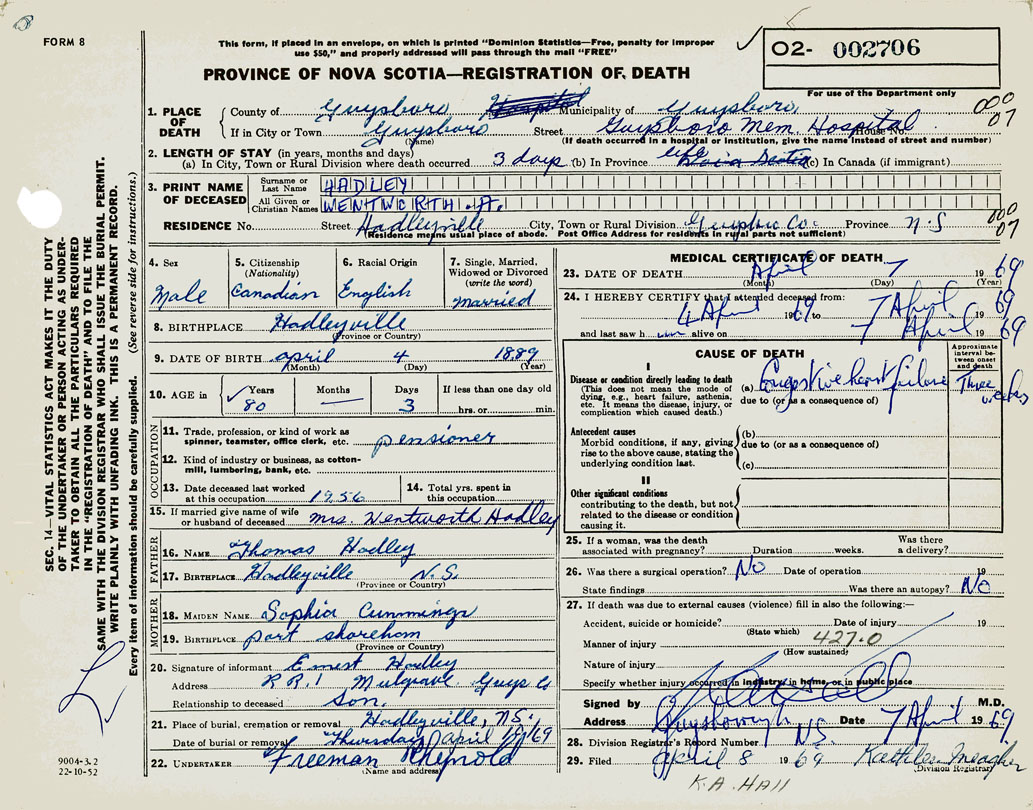 FORM 8
This form, if placed in an envelope, on which is printed "Dominion Statistics—Free, penalty for improper
use $50," and properly addressed will pass through the mail "FREE"
PROVINCE OF NOVA SCOTIA—REGISTRATION OF DEATH
O2- 002706
For use of the Department only
000
07
1. PLACE OF DEATH
County of Guysboro Municipality of Guysboro
If in City or Town Guysboro Street Guysboro Mem. Hospital House No.
(Name) (If death occurred in a hospital or institution, give the name instead of street and number)
2. LENGTH OF STAY (in years, months and days)
(a) In City, Town or Rural Division where death occurred 3 days (b) In Province life (c) In Canada (if immigrant)
3. PRINT NAME OF DECEASED
Surname or Last Name HADLEY
All Given or Christian Names WENTWORTH .A.
RESIDENCE No. Street Hadleyville City, Town or Rural Division Co. Province N.S
000
07
(Residence means usual place of abode. Post Office Address for residents in rural parts not sufficient)
4. Sex
Male
5. Citizenship (Nationality)
Canadian
6. Racial Origin
English
7. Single, Married, Widowed or Divorced (write the word)
Married
8. BIRTHPLACE Hadleyville
(Province or Country)
9. DATE OF BIRTH April 4 1889
(Month) (Day) (Year)
10. AGE in
Years 80
Months —
Days 3
If less than one day old
hrs. or min.
OCCUPATION
11. Trade, profession, or kind of work as
spinner, teamster, office clerk, etc. pensioner
12. Kind of industry or business, as cotton-
mill, lumbering, bank, etc.
13. Date deceased last worked
at this occupation 1956
14. Total yrs. spent in
this occupation
15. If married give name of wife
or husband of deceased Mrs. Wentworth Hadley
FATHER
16. NAME Thomas Hadley
17. BIRTHPLACE Hadleyville N.S.
(Province or Country)
MOTHER
18. MAIDEN NAME Sophia Cummings
19. BIRTHPLACE port shoreham
(Province or Country)
20. Signature of informant Ernest Hadley
Address R R.1 Mulgrave Guys Co
Relationship to deceased Son.
21. Place of burial, cremation or removal Hadleyville, N.S.
Date of burial or removal Thursday April 69
22. UNDERTAKER Freeman
(Name and address)
MEDICAL CERTIFICATE OF DEATH
23. DATE OF DEATH April 7 1969
(Month) (Day) (Year)
24. I HEREBY CERTIFY that I attended deceased from:
4 April 1969 to 7 April 1969
and last saw him alive on 7 April 1969
CAUSE OF DEATH
Approximate interval between onset and death
I
Disease or condition directly leading to death
(This does not mean the mode of
dying, e.g., heart failure, asthenia,
etc. It means the disease, injury, or
complication which caused death.)
(a) Congestive heart failure Three weeks
due to (or as a consequence of)
Antecedent causes
Morbid conditions, if any, giving
rise to the above cause, stating the
underlying condition last.
(b)
due to (or as a consequence of)
(c)
II
Other significant conditions
contributing to the death, but not
related to the disease or condition
causing it.
25. If a woman, was the death
associated with pregnancy? Duration weeks. Was there a delivery?
26. Was there a surgical operation? No Date of operation 19
State findings Was there an autopsy? No
27. If death was due to external causes (violence) fill in also the following:—
Accident, suicide or homicide? Date of injury 19
(State which)
Manner of injury 427.0
(How sustained)
Nature of injury
Specify whether injury occurred in industry, in home, or in public place
Signed by M.D.
Address Guysborough N.S. Date 7 April 1969.
28. Division Registrar's Record Number
29. Filed April 8 1969 Kathleen Meagher
(Division Registrar)
K.A. Hall
SEC. 14—VITAL STATISTICS ACT MAKES IT THE DUTY
OF THE UNDERTAKER OR PERSON ACTING AS UNDER-
TAKER TO OBTAIN ALL THE PARTICULARS REQUIRED
IN THE "REGISTRATION OF DEATH" AND TO FILE THE
SAME WITH THE DIVISION REGISTRAR WHO SHALL ISSUE THE BURIAL PERMIT.
WRITE PLAINLY WITH UNFADING INK. THIS IS A PERMANENT RECORD.
Every item of information should be carefully supplied. (See reverse side for instructions.)
9004-3.2
22-10-52